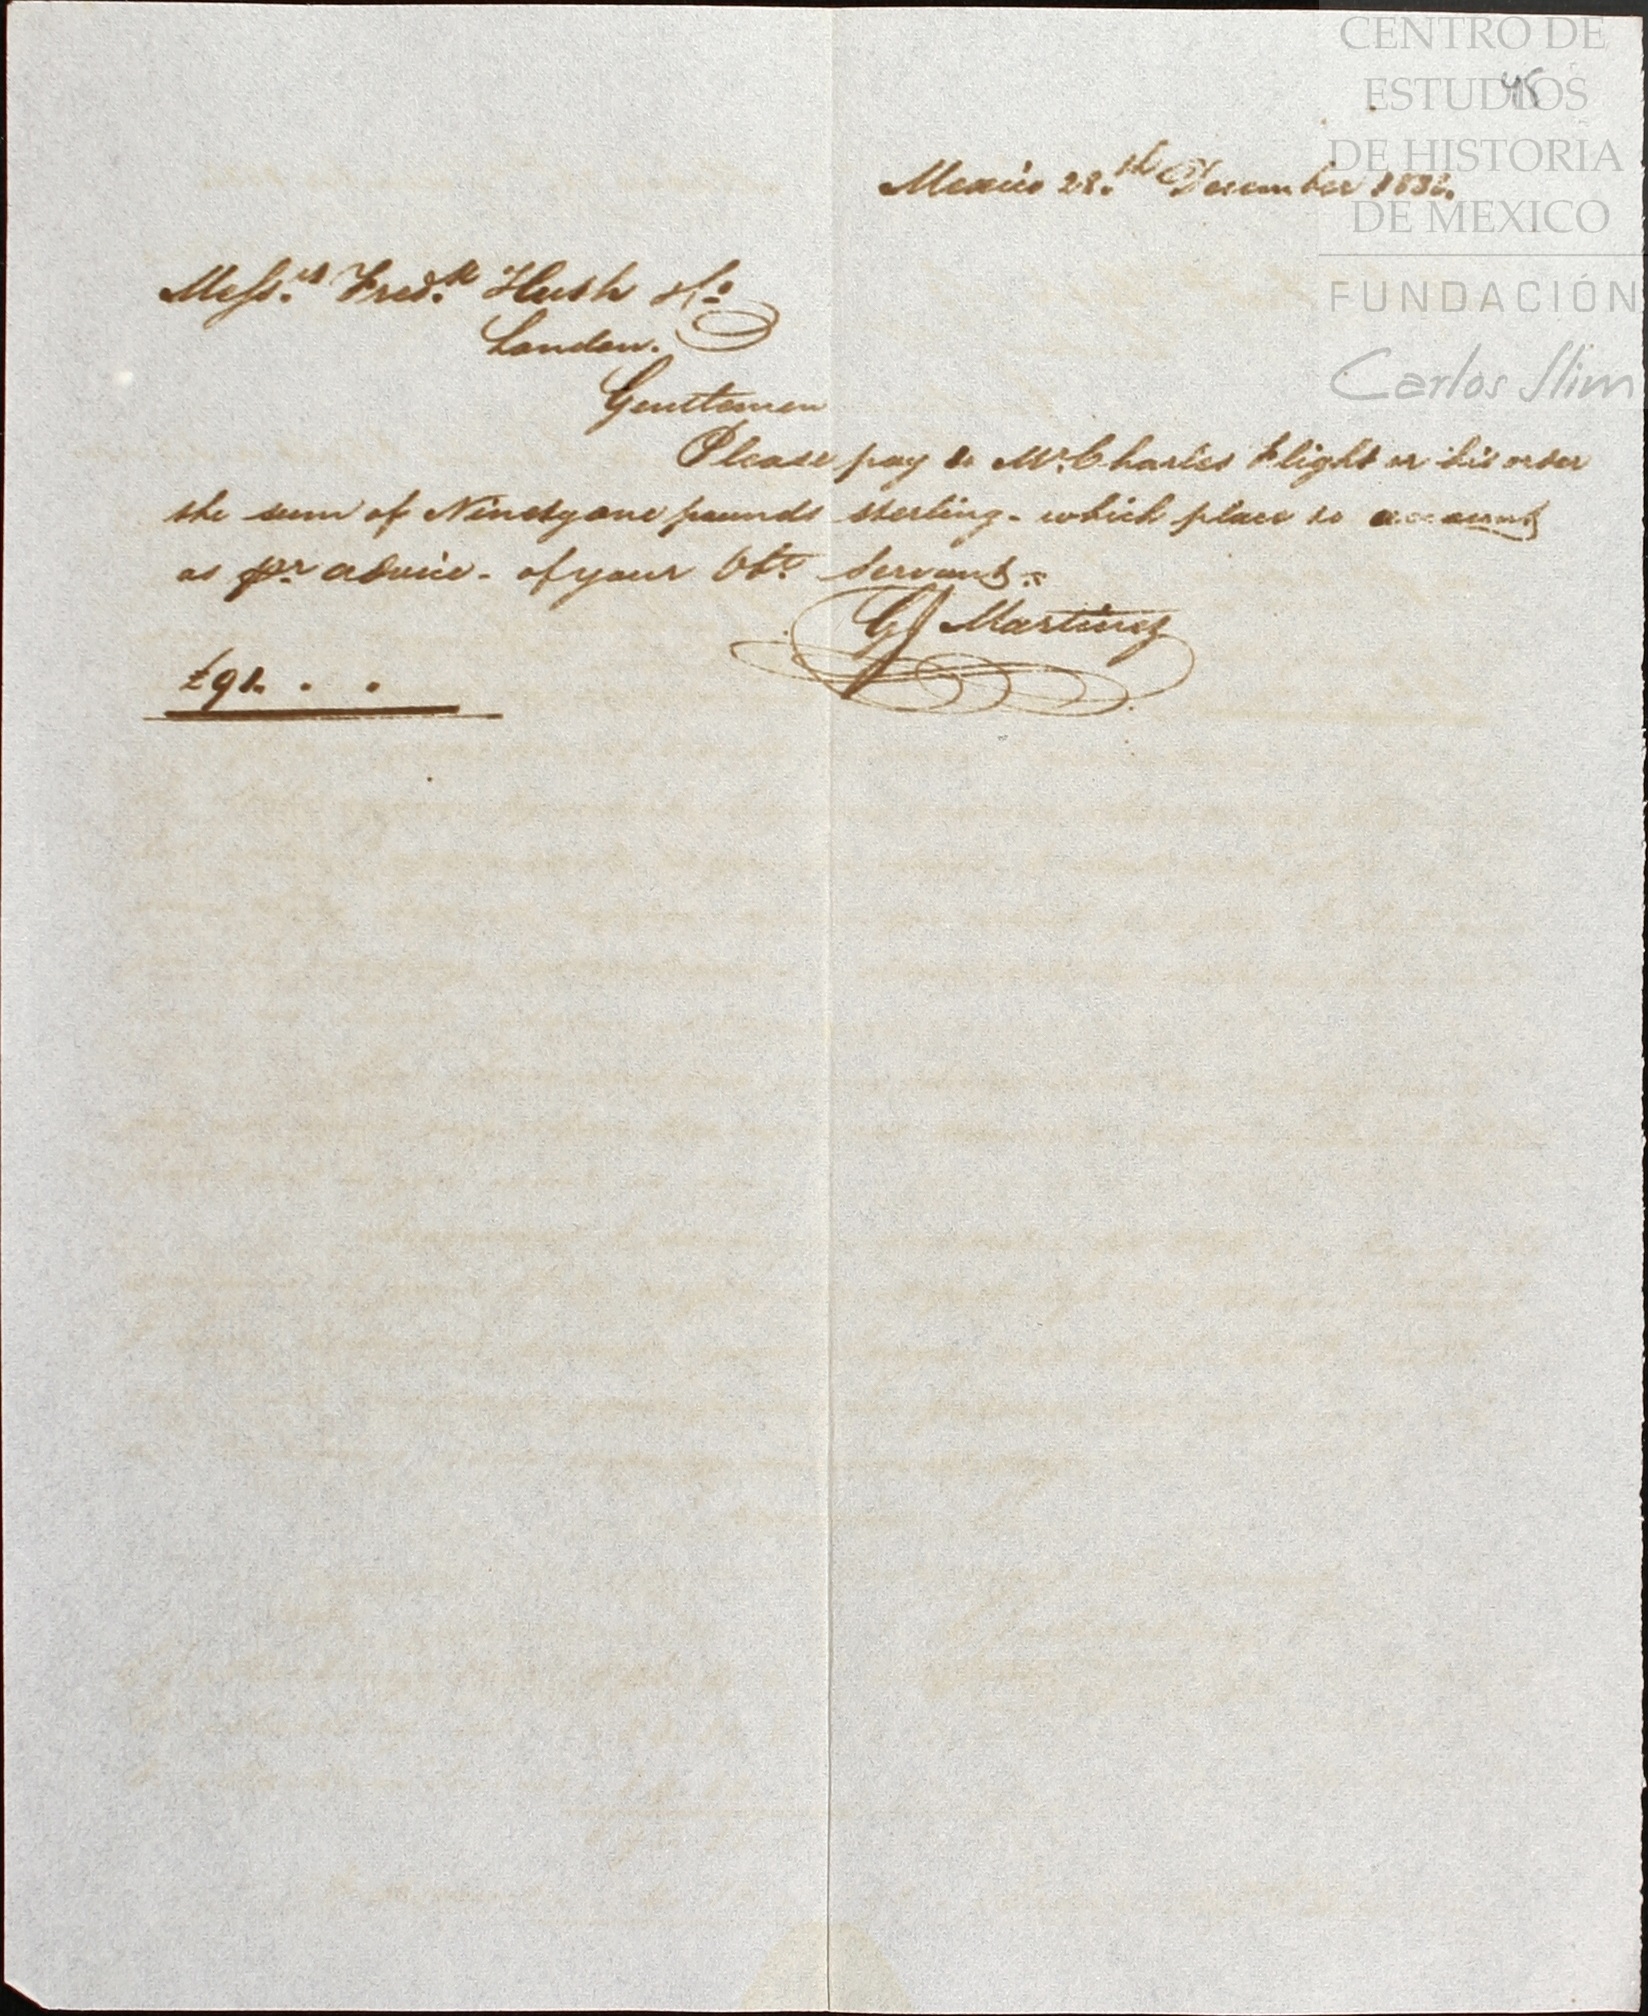 CENTRO DE
ESTUDIOS
DE HISTORIA
DE MEXICO
FUNDACIÓN
Carlos Slim
45
Mexico 28.th Desember 1838.
Mess.rs Fred.k Huth &Co
London.
Gentlemen
Please pay to Mr. Charles Flight or his order
the sum of Ninety one pounds sterling - which place to account
as pr advice - of your Obt. Servant.
GJ Martinez
£91. . .